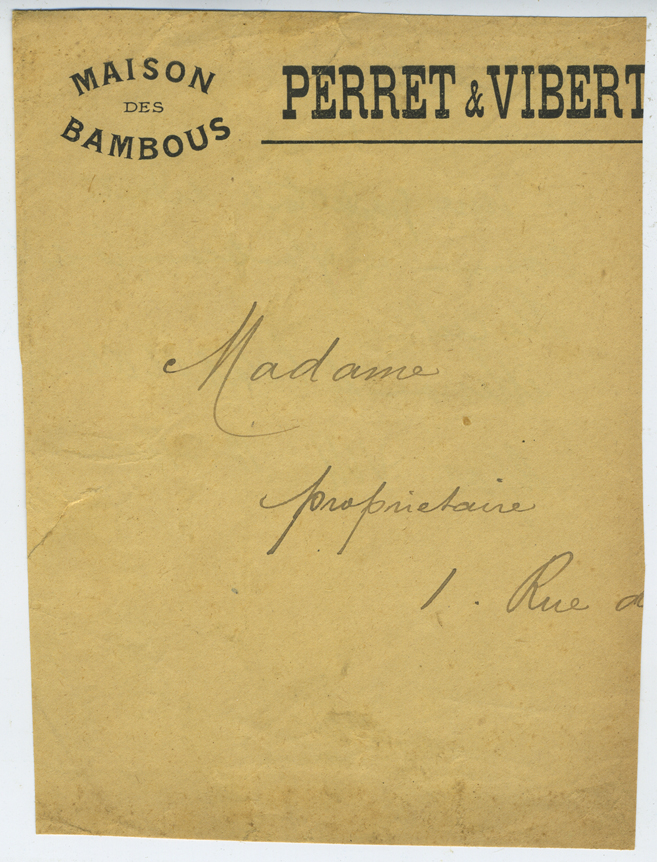 MAISON
DES
BAMBOUS
PERRET & VIBERT
Madame
propriétaire
1. Rue d